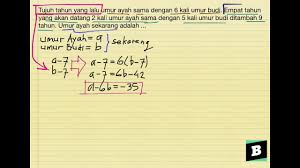 Tujuh tahun yang lalu umur ayah sama dengan 6 kali umur budi. Empat tahun
yang akan datang 2 kali umur ayah sama dengan 5 kali umur budi ditambah 9
tahun. Umur ayah sekarang adalah ...
umur Ayah = a
umur Budi = b
sekarang
a-7
b-7
a-7 = 6(b-7)
a-7 = 6b-42
a-6b = -35
B